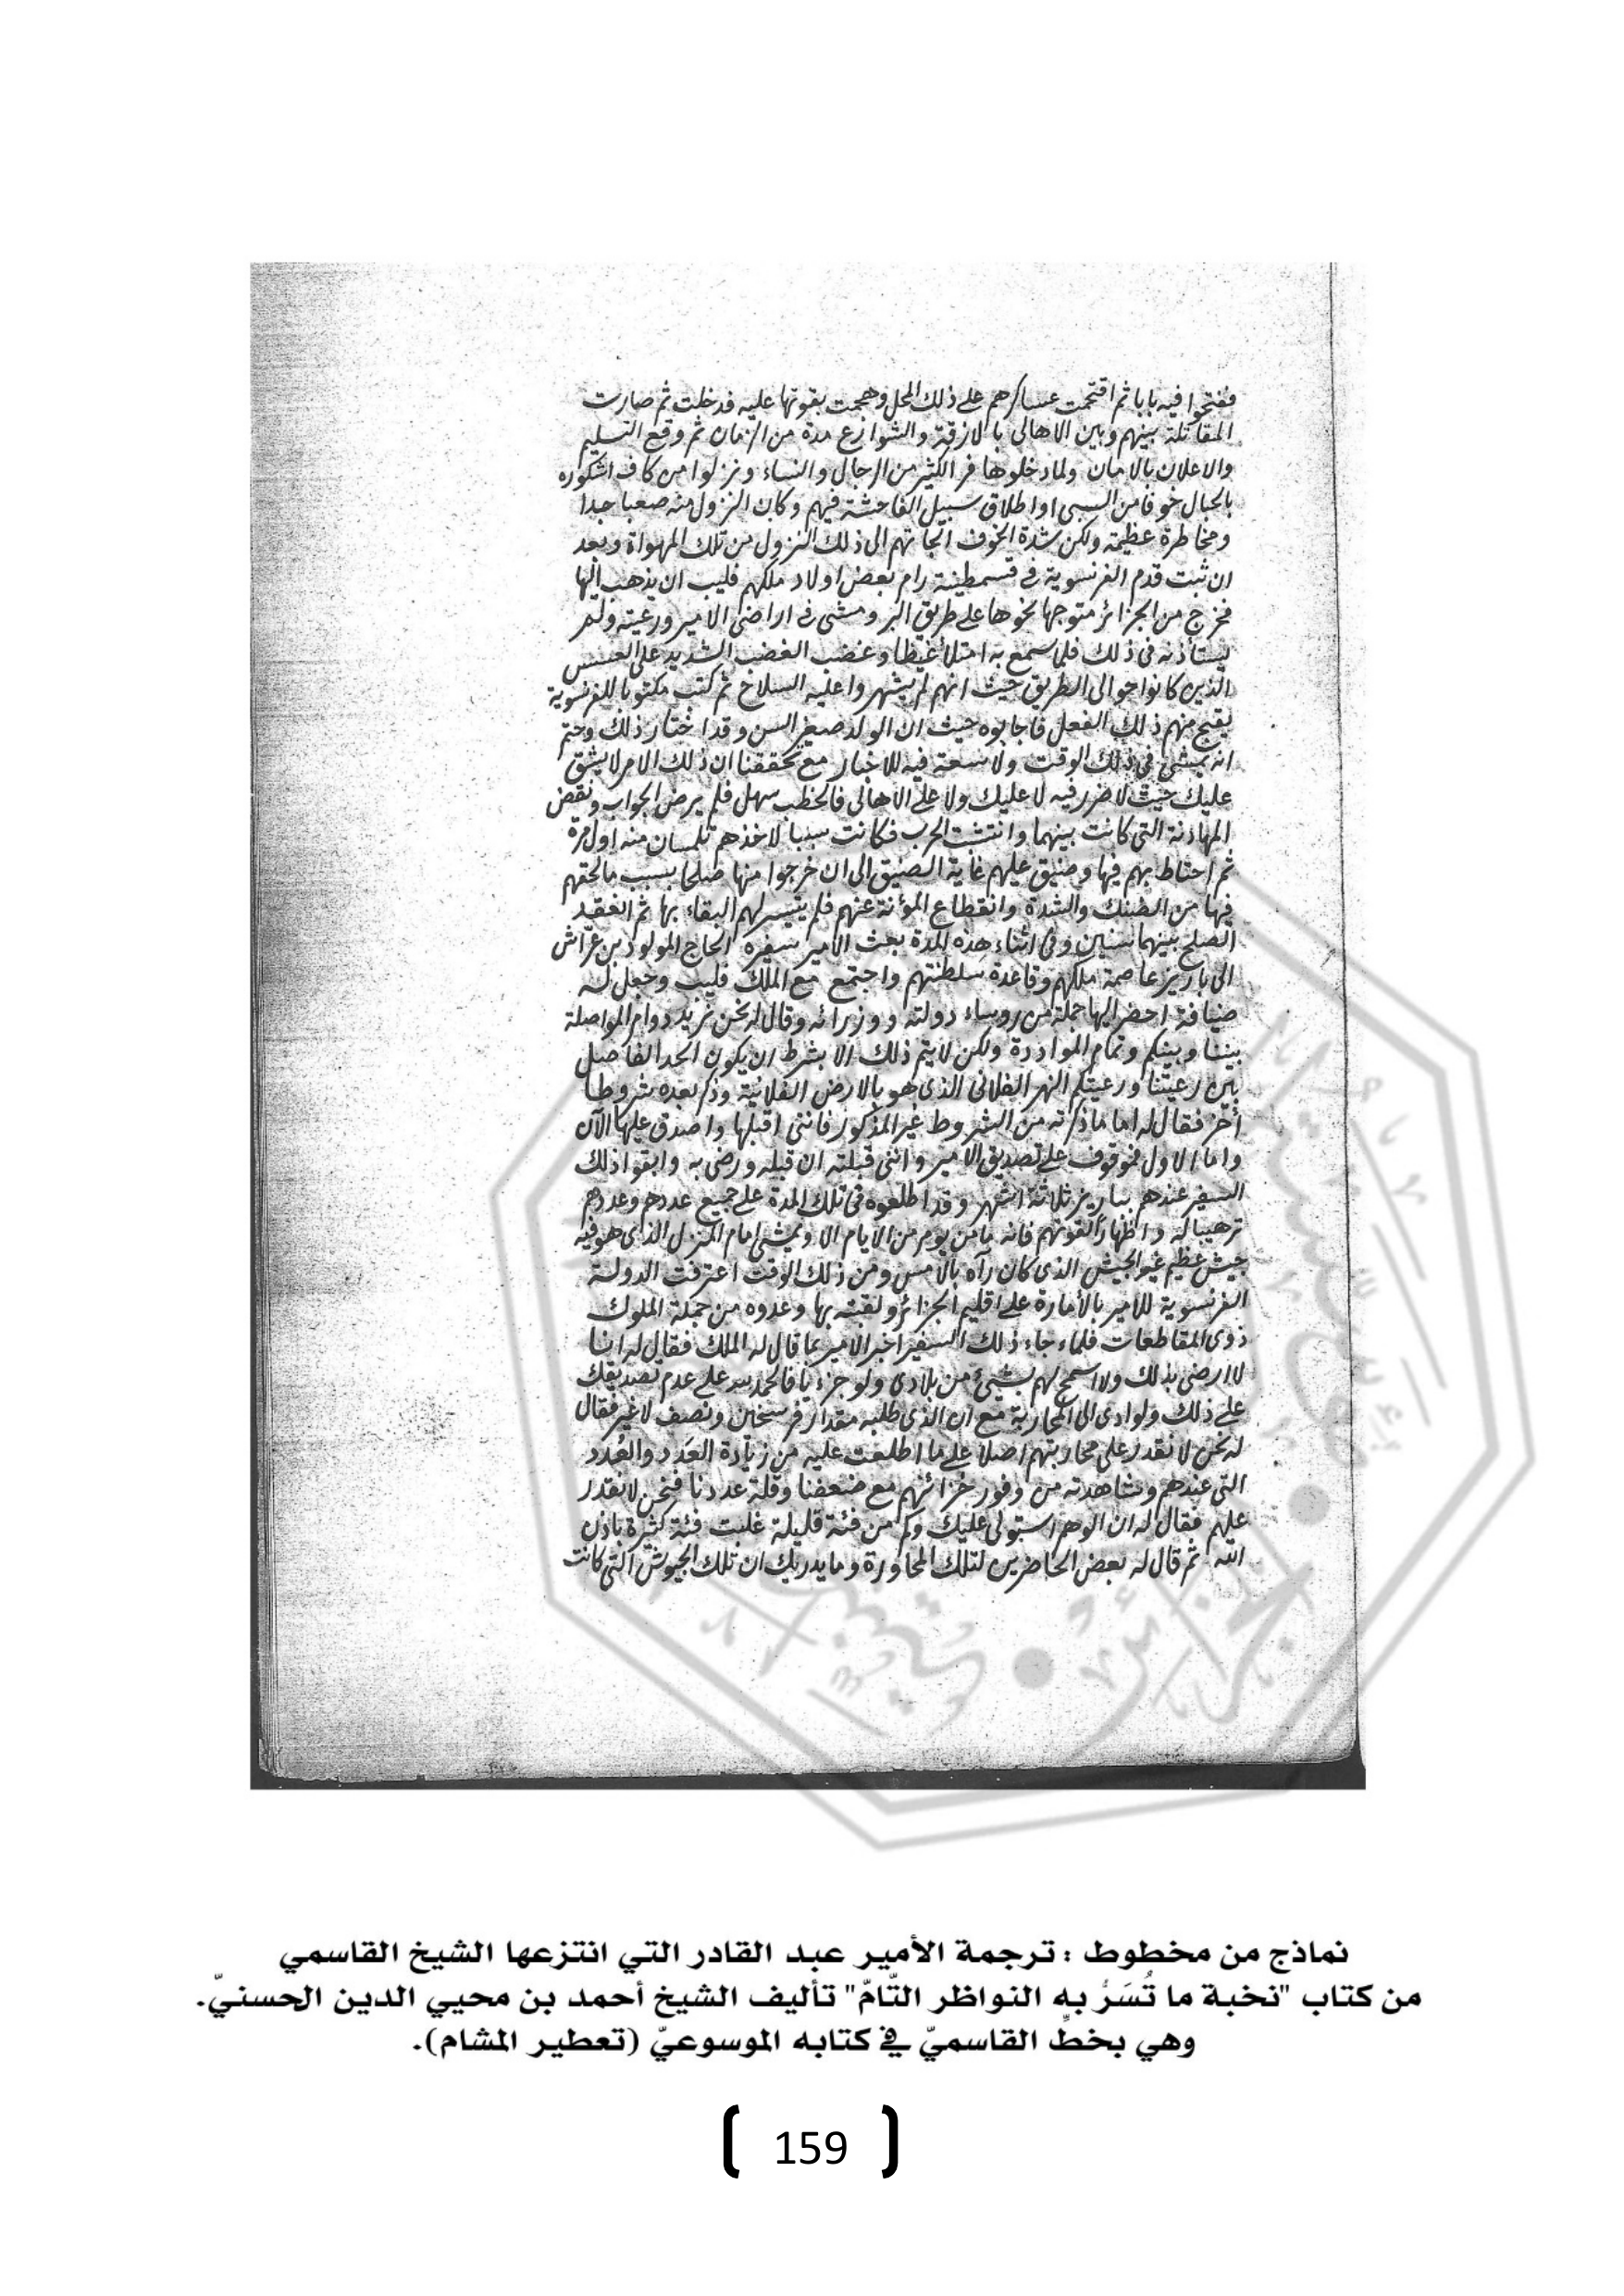 ففتحوا فيه بابا ثم اقتحمت عساكرهم على ذلك المحل وهجمت بقوتها عليه فدخلت ثم صارت
المقاتلة بينهم وبين الاهالى بالازقة والشوارع مدة من الزمان ثم وقع التسليم
والاعلان بالامان ولما دخلوها فر الكثير من الرجال والنساء ونزلوا من كاف اشكوره
بالحبال خوفا من السبى او اطلاق سبيل الفاحشة فيهم وكان النزول منه صعبا جدا
ومخاطرة عظيمة ولكن شدة الخوف الجأتهم الى ذلك النزول من تلك المهواة وبعد
ان ثبت قدم الفرنسوية فى قسمطينة رام بعض اولاد ملكهم فليب ان يذهب اليها
فخرج من الجزائر متوجها نحوها على طريق البر ومشى فى اراضى الامير ورعيته ولم
يستأذنه فى ذلك فلما سمع به امتلأ غيظا وغضب الغضب الشديد على العسس
الذين كانوا حوالى الطريق حيث انهم لم يشهروا عليه السلاح ثم كتب مكتوبا للفرنسوية
بقبح منهم ذلك الفعل فاجابوه حيث ان الولد صغير السن وقد اختار ذلك وحتم
انه يمشى فى ذلك الوقت ولا سعة فيه للاخبار مع تحققنا ان ذلك الامر لا يشق
عليك حيث لا ضرر فيه لا عليك ولا على الاهالى فالخطب سهل فلم يرض الجواب ونقض
المهادنة التى كانت بينهما وانتشت الحرب فكانت سببا لاخذهم تلمسان منه اول مرة
ثم احتاط بهم فيها وضيق عليهم غاية الضيق الى ان خرجوا منها صلحا بسبب ما لحقهم
فيها من الضنك والشدة وانقطاع المؤنة عنهم فلم يتيسر لهم البقاء بها ثم انعقد
الصلح بينهما سنين وفى اثناء هذه المدة بعث الامير سفيره الحاج المولود بن عرّاش
الى باريز عاصمة ملكهم وقاعدة سلطنتهم واجتمع مع الملك فليب وجعل له
ضيافة احضر اليها جملة من روساء دولته ووزرائه وقال له نحن نريد دوام المواصلة
بيننا وبينكم وتمام الموادرة ولكن لا يتم ذلك الا بشرط ان يكون الحد الفاصل
بين رعيتنا ورعيتكم النهر الفلانى الذى هو بالارض الفلانية وذكر بعده شروطا
أخر فقال له اما ما ذكرته من الشروط غير المذكور فاننى اقبلها واصدق عليها الآن
واما الاول فموقوف على تصديق الامير واننى قبلته ان قبله ورضى به وابقوا ذلك
السفير عندهم بباريز ثلاثة اشهر وقد اطلعوه فى تلك المدة على جميع عددهم وعددهم
ترهيبا له واظهارا لقوتهم فانه ما من يوم من الايام الا ويمشى امام المنزل الذى هو فيه
جيش عظيم غير الجيش الذى كان رآه بالامس ومن ذلك الوقت اعترفت الدولة
الفرنسوية للامير بالأمارة على اقليم الجزائر ولقبته بها وعدوه من جملة الملوك
ذوى المقاطعات فلما جاء ذلك السفير اخبر الامير بما قال له الملك فقال له انا
لا ارضى بذلك ولا اسمح لهم بشئ من بلادى ولو جزءيا فالحمد لله على عدم تصديقك
على ذلك ولو ادى الى المحاربة مع ان الذى طلبه مقدار فرسخين ونصف لا غير فقال
له نحن لا نقدر على محاربتهم اصلا على ما اطلعت عليه من زيادة العَدد والعُدد
التى عندهم وشاهدته من وفور خزائنهم مع ضعفنا وقلة عددنا فنحن لا نقدر
عليهم فقال له ان الوهم استولى عليك وكم من فئة قليلة غلبت فئة كثيرة باذن
الله ثم قال له بعض الحاضرين لتلك المحاورة وما يدريك ان تلك الجيوش التى كانت
نماذج من مخطوط : ترجمة الأمير عبد القادر التي انتزعها الشيخ القاسمي
من كتاب "نخبة ما تُسَرُّ به النواظر التّامّ" تأليف الشيخ أحمد بن محيي الدين الحسنيّ.
وهي بخطِّ القاسميّ في كتابه الموسوعيّ (تعطير المشام).
159